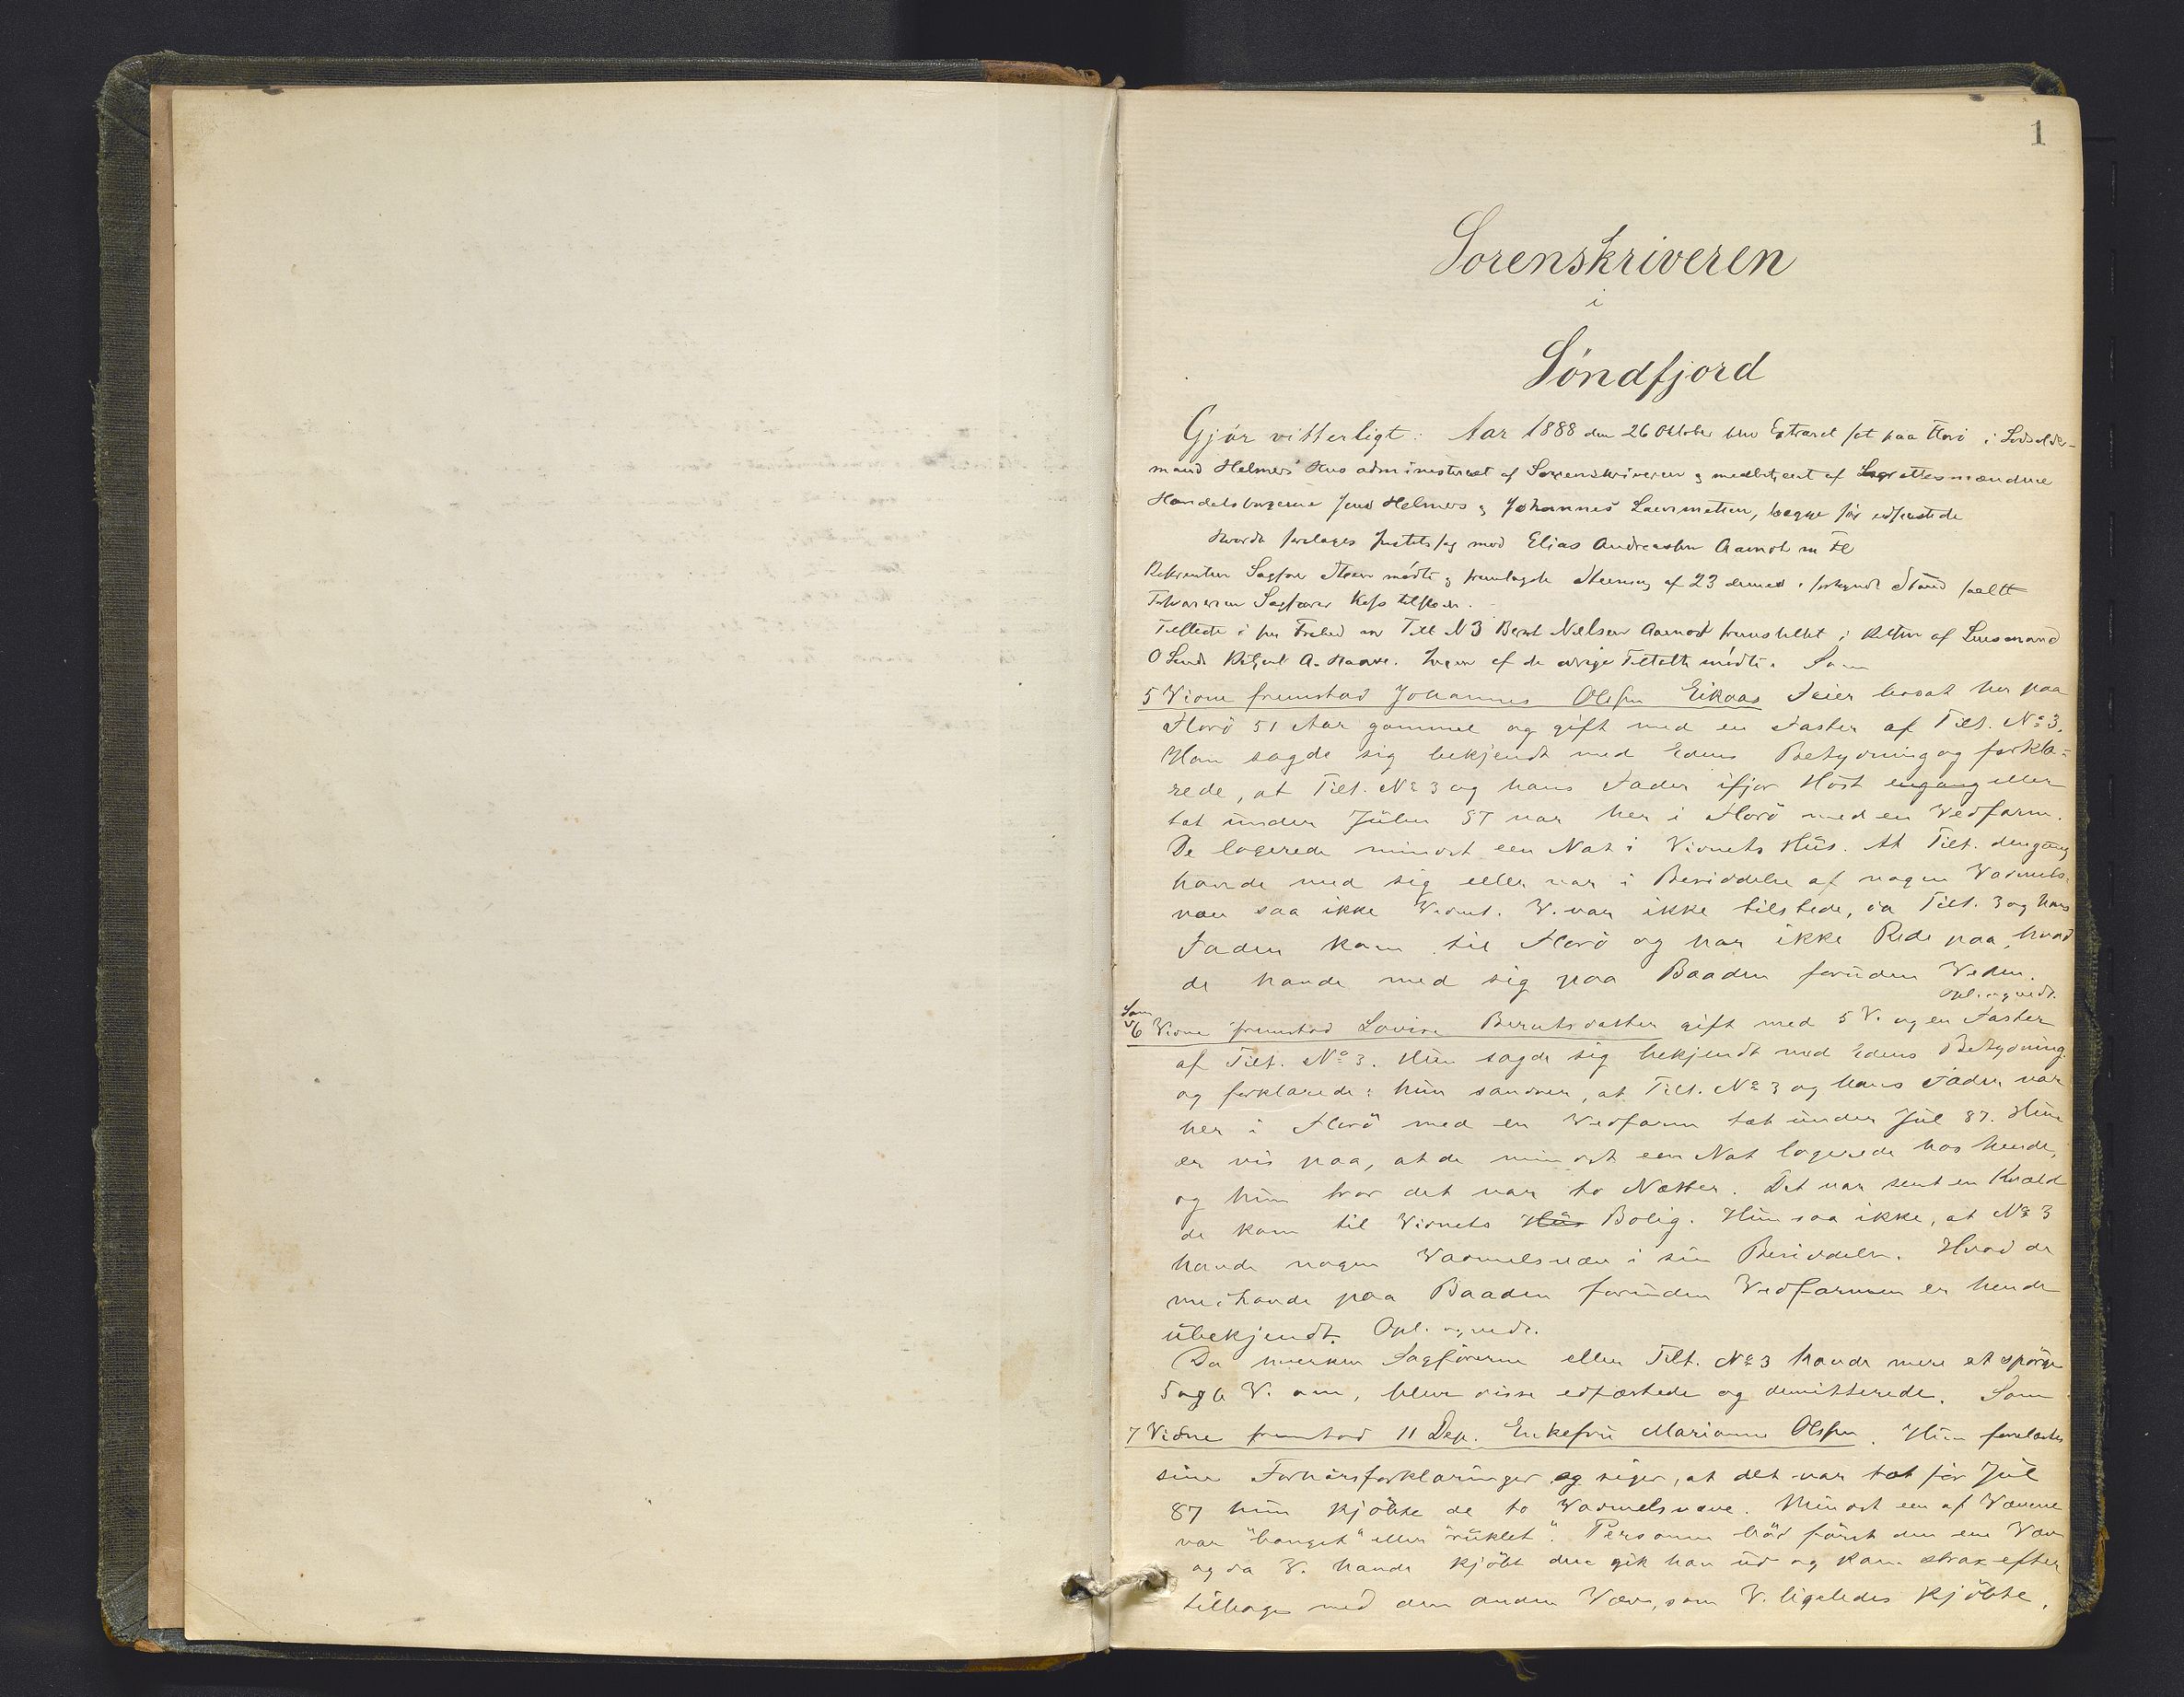 1
Sorenskriveren
i
Söndfjord
Gjör vitterligt: Aar 1888 den 26 Oktober blev Extraret sat paa Florö i Lodsolder-
mand Helmers' Hus administreret af Sorenskriveren og meddomt af Lagrettesmændene
Handelsborgerne Jens Helmers og Johannes Laurentsen, begge før edfæstede
Hvorda foretages Justitssag mod Elias Andreassen Aamot m Fl
Rekvirenten Sagfører mødte og fremlagde Stevning af 23 dennes i forkyndt Stand saalt
Forsvareren Sagfører Koss tilstede.
Tilstede i fri Frahed er Tilt N 3 Bernt Nilsen Aamot fremstillet i Retten af Lensmand
O Sunde A. Haave. Ingen af de øvrige Tiltalte mødte. Som
5 Vidne fremstod Johannes Olsen Eikaas Feier bosat her paa
Florö 51 Aar gammel og gift med en Faster af Tilt. No 3.
Han sagde sig bekjendt med Edens Betydning og forkla-
rede, at Tilt. No 3 og hans Fader ifjor Höst engang eller
tæt under Julen 87 var her i Florö med en Vedfarm.
De logerede mindst een Nat i Vidnets Hus. At Tilt. dengang
havde med sig eller var i Besiddelse af nogen Vadmels-
væv saa ikke Vidnet. V. var ikke tilstede, da Tilt. 3 og hans
Fader kom til Florö og har ikke Rede paa, hvad
de havde med sig paa Baaden foruden Veden.
Opl. og vedt.
Som
6 Vidne fremstod Lovise Berntsdatter gift med 5 V. og en Faster
af Tilt. No 3. Hun sagde sig bekjendt med Edens Betydning
og forklarede: hun sandser, at Tilt. No 3 og hans Fader var
her i Florö med en Vedfarm tæt under Jul 87. Hun
er vis paa, at de mindst een Nat logerede hos hende,
og hun tror det var to Nætter. Det var sent en Kvæld
de kom til Vidnets Hus Bolig. Hun saa ikke, at No 3
havde nogen Vadmelsvæv i sin Besiddelse. Hvad de
medhavde paa Baaden foruden Vedfarmen er hende
ubekjendt. Opl. og vedt.
Da hverken Sagförerne eller Tilt. No 3 havde mere at spörge
5 og 6 V. om, blev disse edfæstede og demitterede. Som
7 Vidne fremstod 11 Dep. Enkefru Marianne Olsen. Hun forelæstes
sine Forhörsforklaringer og siger, at det var tæt för Jul
87 hun kjöbte de to Vadmelsvæve. Mindst een af Vævene
var "banget" eller "ruklet". Personen böd först den ene Væv
og da V. havde kjöbt den gik han ud og kom strax efter
tilbage med den anden Væv, som V. ligeledes kjöbte.